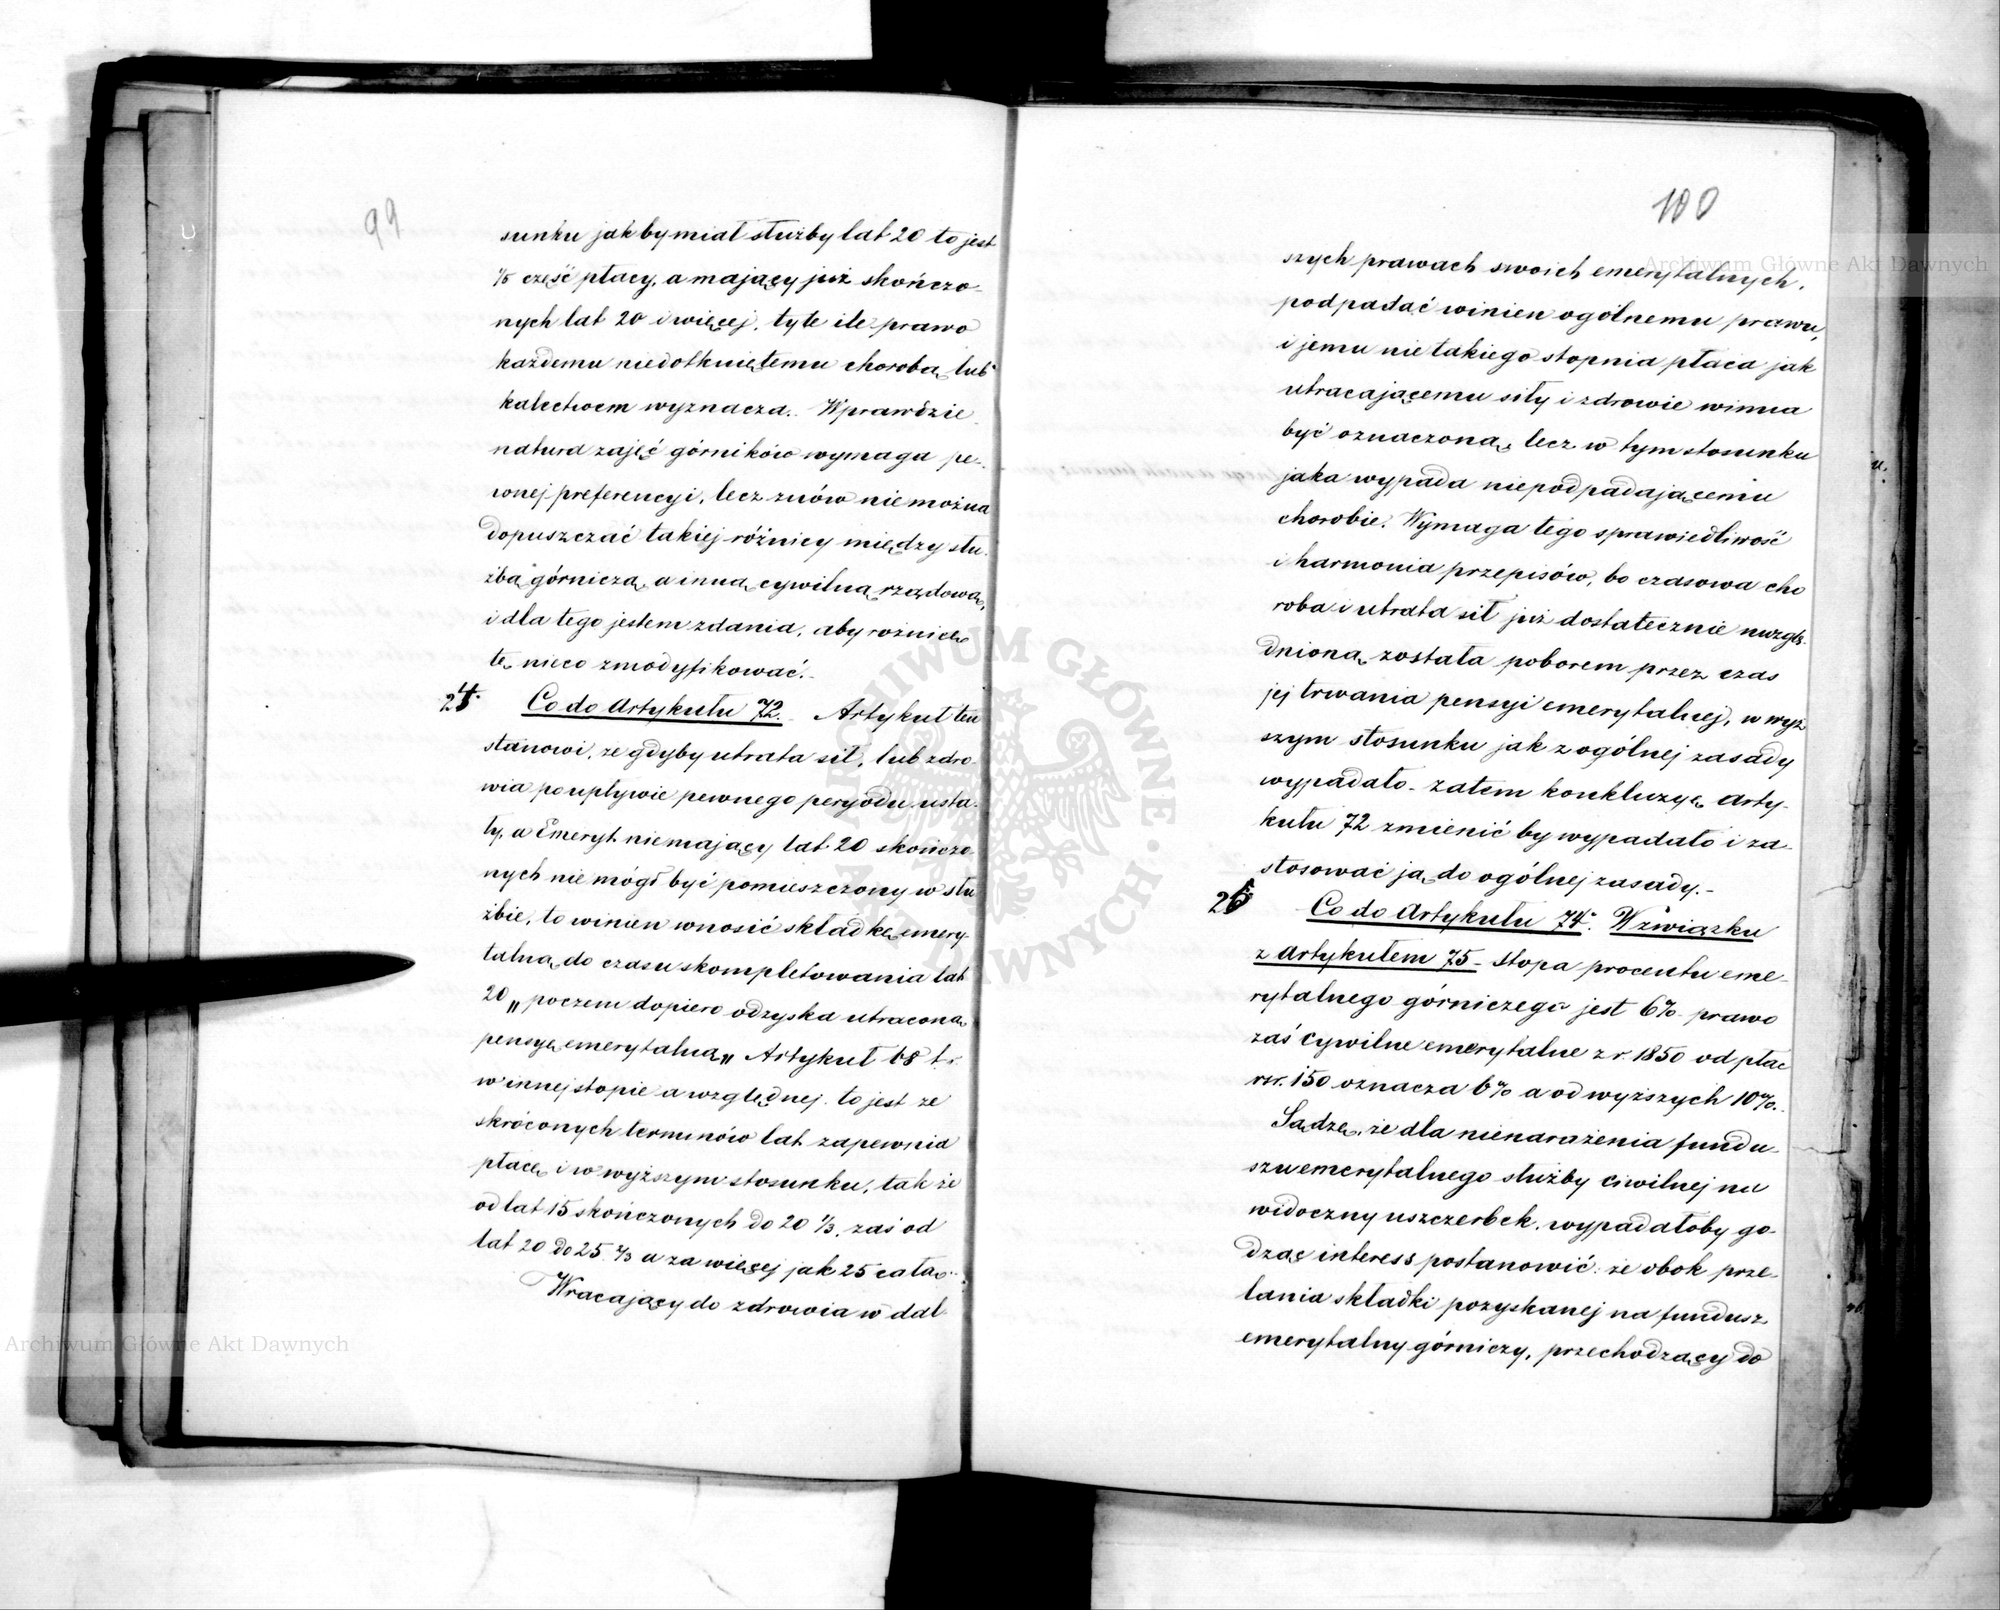 99
sunku jakby miał służby lat 20 to jest
część płacy, a mający już skończo-
nych lat 20 i więcej, tyle ile prawo
każdemu niedotkniętemu chorobą lub
kalectwem wyznacza. Wprawdzie
natura zajęć górników wymaga pe-
wnej preferencyi, lecz znów nie można
dopuszczać takiej różnicy między słu-
żbą górniczą, a inną cywilną rządową,
i dla tego jestem zdania, aby różnicę
tę nieco zmodyfikować.-
24. Co do Artykułu 72. Artykuł ten
stanowi, że gdyby utrata sił, lub zdro
wia po upływie pewnego peryodu usta-
ły, a Emeryt niemający lat 20 skończo
nych nie mógł być pomieszczony w słu
żbie, to winien wnosić składkę emery-
talną do czasu skompletowania lat
20 „poczem dopiero odzyska utraconą
pensyę emerytalną„ Artykuł 68
w innej stopie a względnej to jest ze
skróconych terminów lat zapewnia
płacę i w wyższym stosunku, tak że
od lat 15 skończonych do 20 1/3, zaś od
lat 20 do 25 2/3 a za więcej jak 25 całą.
Wracający do zdrowia w dal
100
szych prawach swoich emerytalnych,
podpadać winien ogólnemu prawu,
i jemu nie takiego stopnia płaca jak
utracającemu siły i zdrowie winna
być oznaczoną, lecz w tym stosunku
jaka wypada niepodpadającemu
chorobie. Wymaga tego sprawiedliwość
i harmonia przepisów, bo czasowa cho
roba i utrata sił już dostatecznie
dnioną została poborem przez czas
jej trwania pensyi emerytalnej, w wyż
szym stosunku jak z ogólnej zasady
wypadało - zatem konkluzyę Arty-
kułu 72 zmienić by wypadało i za-
stosować ją do ogólnej zasady.-
25 Co do Artykułu 74. W związku
z Artykułem 75 - stopa procentu eme-
rytalnego górniczego jest 6% prawo
zaś cywilne emerytalne z r. 1850 od płac
rsr. 150 oznacza 6% a od wyższych 10%.
Sądzę, że dla nienarażenia fundu-
szu emerytalnego służby ciwilnej na
widoczny uszczerbek, wypadałoby go-
dząc interess postanowić: że obok prze-
lania składki pozyskanej na fundusz
emerytalny górniczy, przechodzący do
Archiwum Główne Akt Dawnych
Archiwum Główne Akt Dawnych
ARCHIWUM GŁÓWNE AKT DAWNYCH